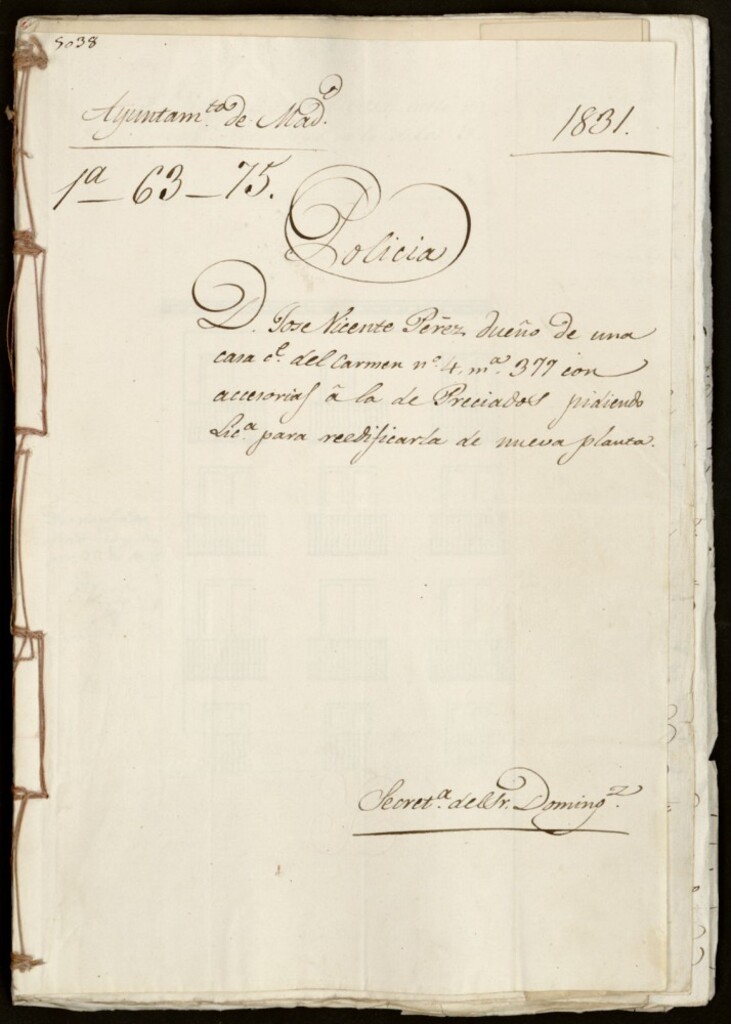 5038
Ayuntam.to de Mad.d
1831.
1a - 63 - 75.
Policia
D. Jose Vicente Perez dueño de una
casa c.e del Carmen n.o 4, m.a 377 con
accesorias á la de Preciados pidiendo
Lic.a para reedificarla de nueva planta.
Secret.a del Sr. Doming.z